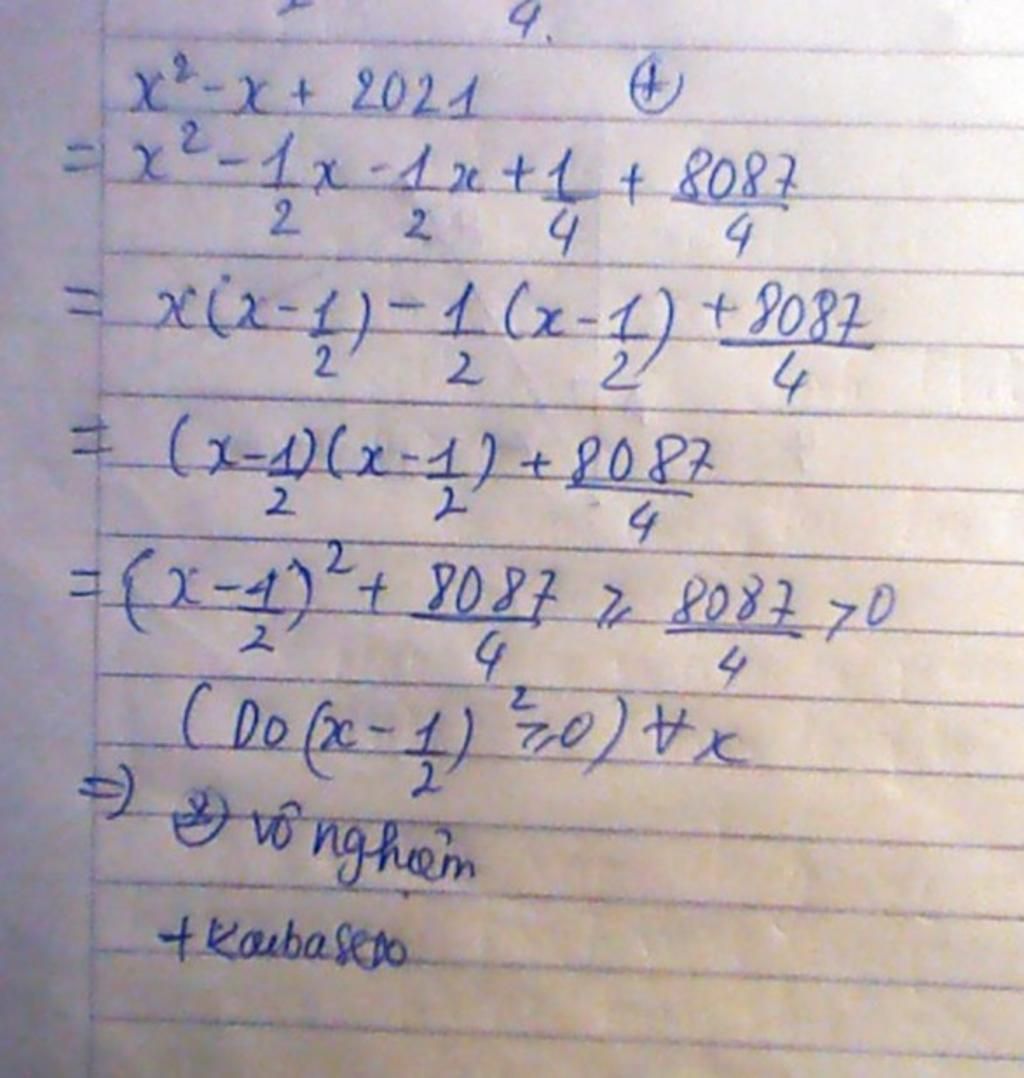 4.
x² - x + 2021 (+)
= x² - 1/2 x - 1/2 x + 1/4 + 8087/4
= x(x - 1/2) - 1/2 (x - 1/2) + 8087/4
= (x - 1/2)(x - 1/2) + 8087/4
= (x - 1/2)² + 8087/4 ≥ 8087/4 > 0
(Do (x - 1/2)² ≥ 0) ∀x
=> vô nghiệm